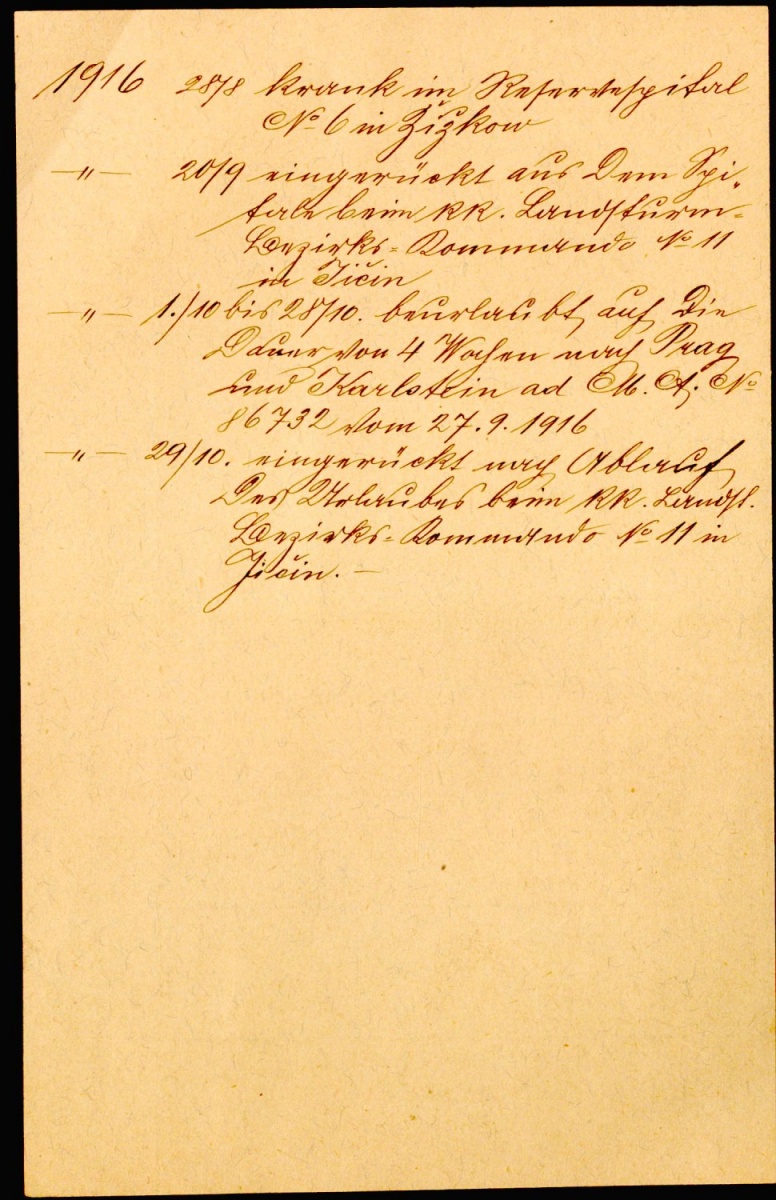 1916 28/8 krank im Reservespital
No 6 in Žižkow
—„— 20/9 eingerückt aus dem Spi„
tale beim kk. Landsturm=
Bezirks=Kommando No 11
in Jičin
—„— 1./10 bis 28/10. beurlaubt auf die
Dauer von 4 Wochen nach Prag
und Karlstein ad M. A. No
86732 vom 27.9.1916
—„— 29/10. eingerückt nach Ablauf
des Urlaubes beim kk. Landst.
Bezirks=Kommando No 11 in
Jičin. —